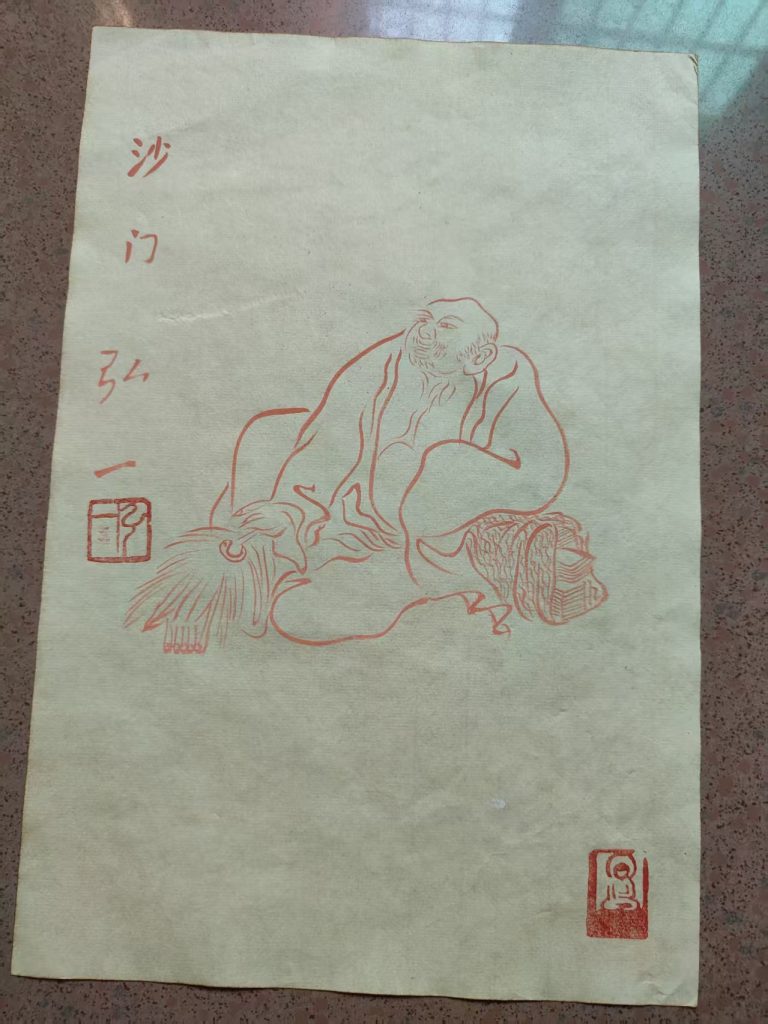 沙门 弘一